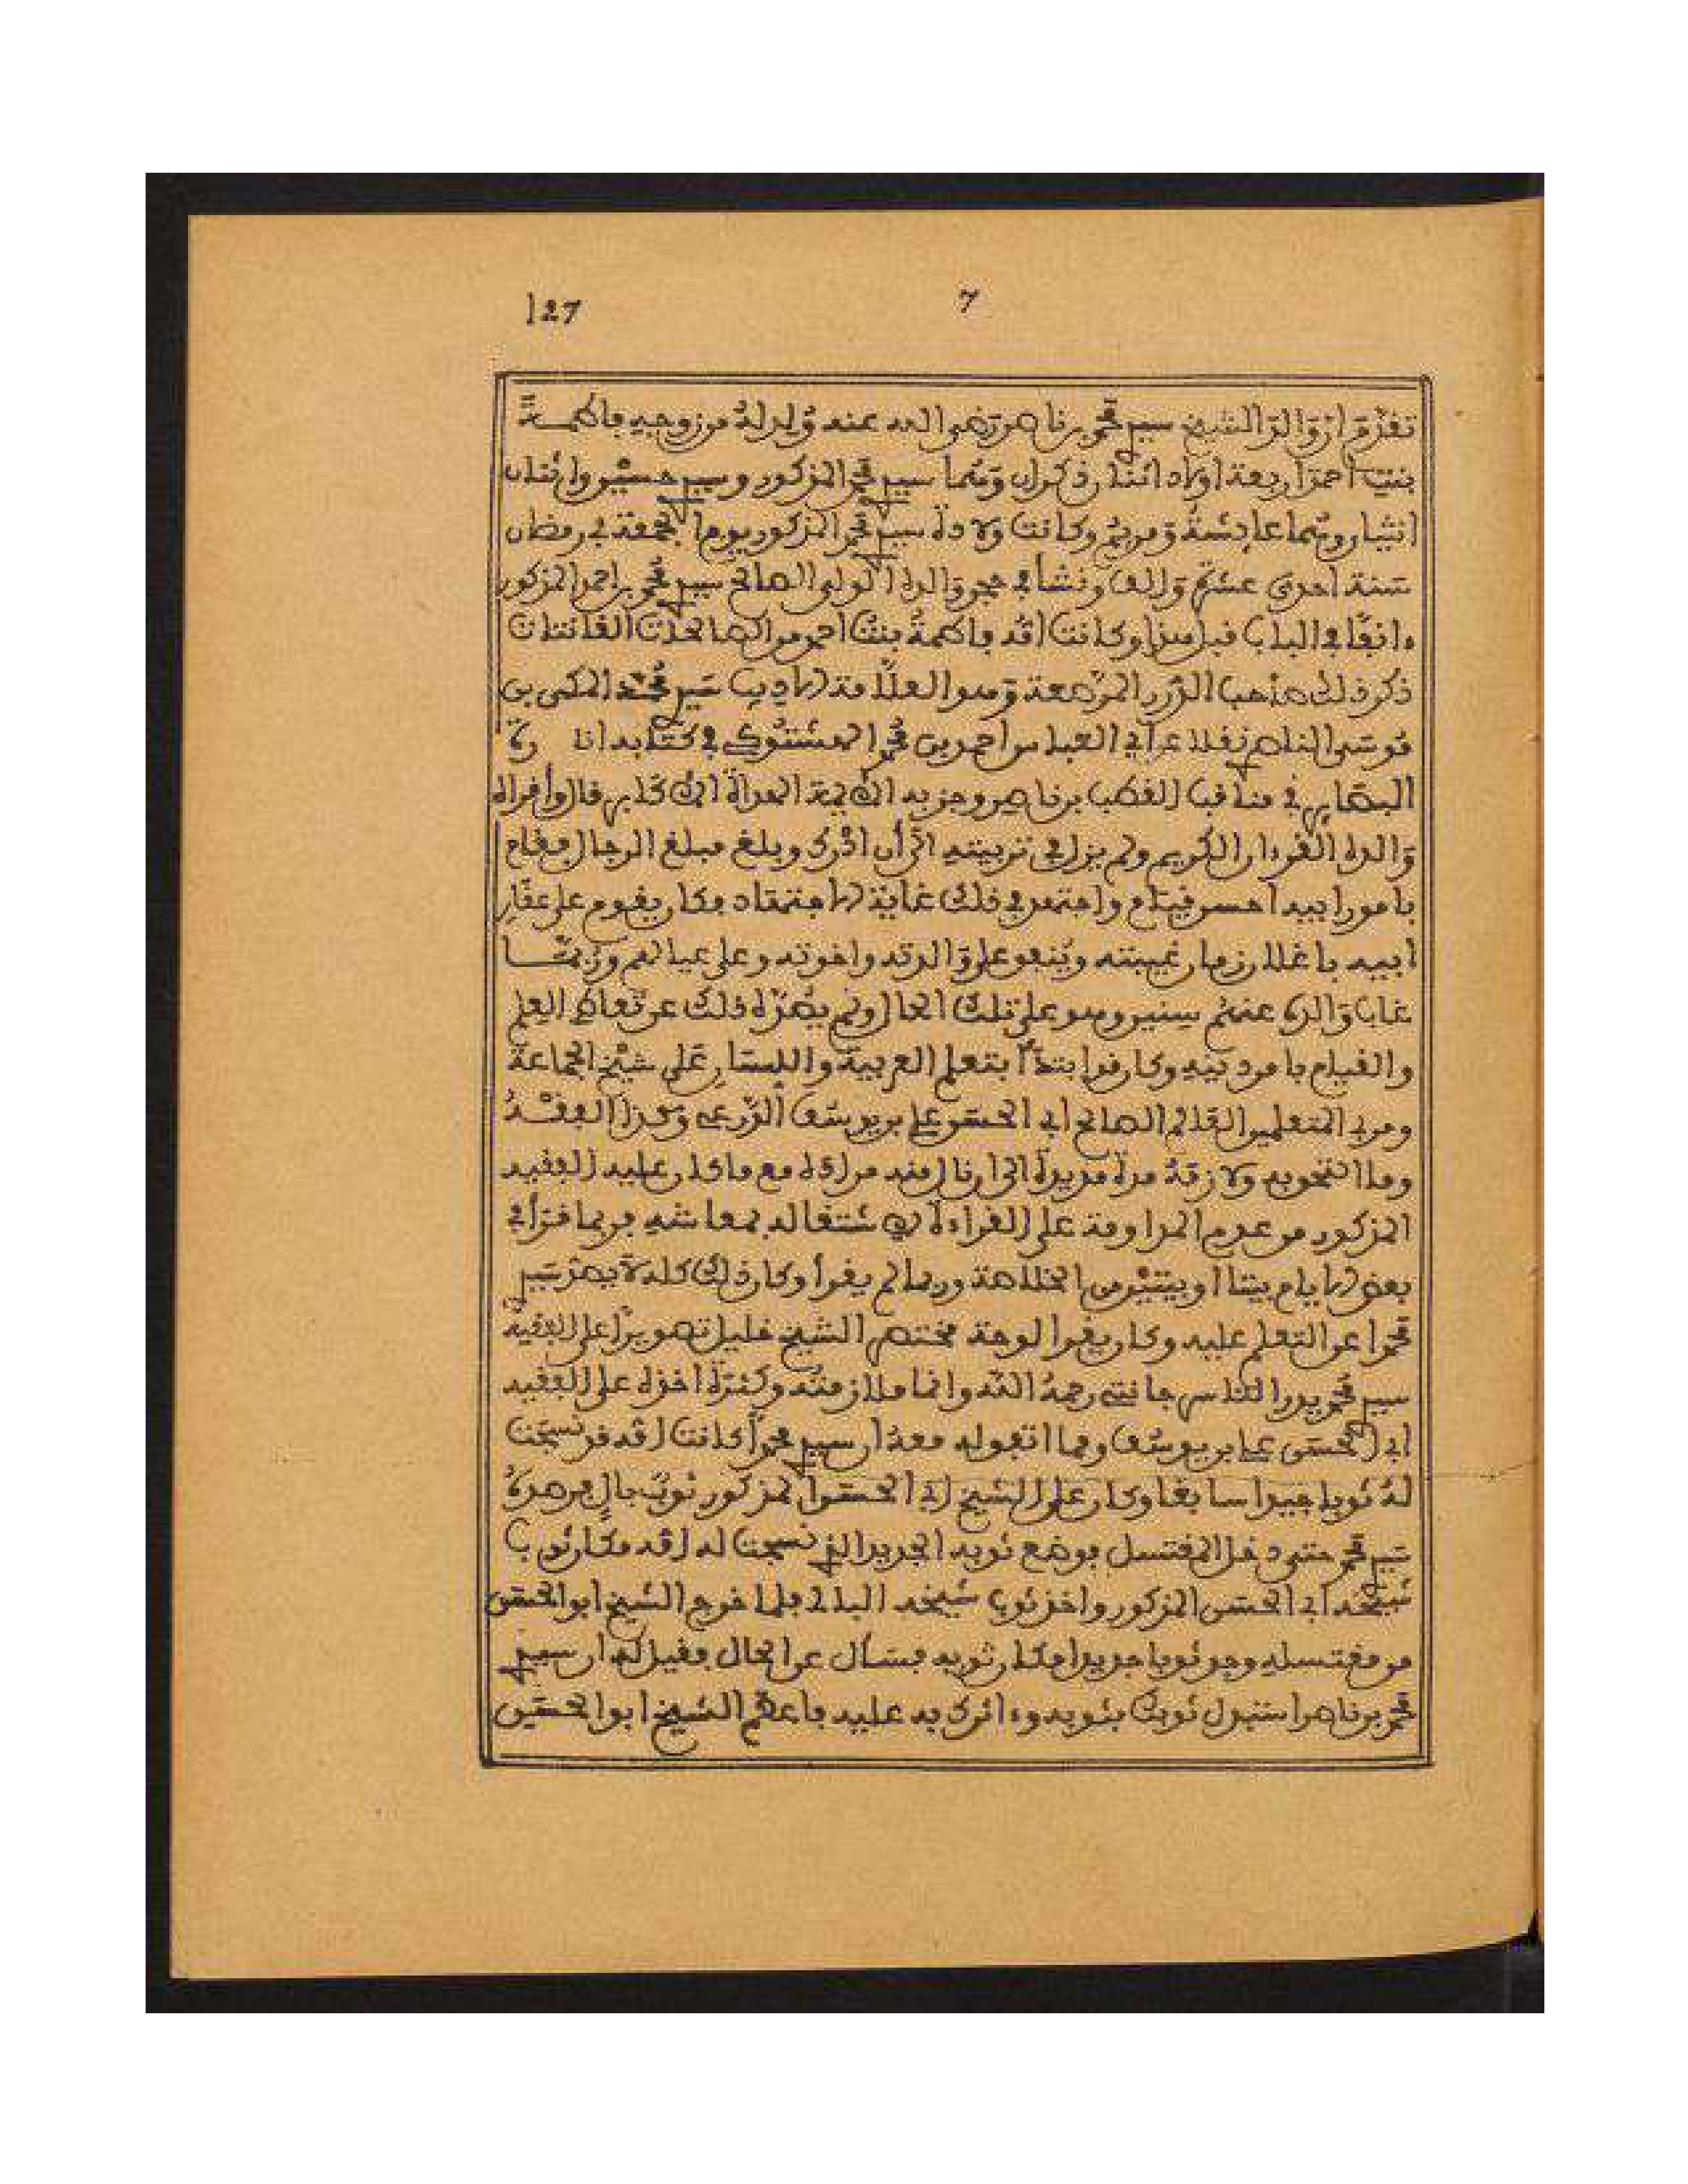 127 7
تقدم أن والد الشيخ سيدي محمد بن ناصر رضي الله عنه ولد له من زوجيه فاطمة
بنت احمد اربعة اولاد اثنان ذكران وهما سيدي محمد المذكور وسيدي حسين واثنتان
انثيان وهما عايشة ومريم وكانت ولادة سيدي محمد المذكور يوم الجمعة في رمضان
سنة احدى عشرة والف ونشأ في حجر والده الولي الصالح سيدي محمد بن احمد المذكور
ءانفا في الباب قبل هذا وكانت امه فاطمة بنت احمد من الصالحات القانتات
ذكر ذلك صاحب الدرر المرصعة وهو العلامة الاديب سيدي محمد المكي بن
موسى الناصري نقلا عن أبي العباس احمد بن محمد المشتوكي في كتابه انا رة
البصاير في مناقب القطب بن ناصر وحزبه قال وأقراه
والده القرءان الكريم ولم يزل في تربيته الى أن ادرك وبلغ مبلغ الرجال فقام
بامور ابيه احسن قيام واجتهد في ذلك غاية الاجتهاد فكان يقوم على عقار
ابيه باغلال زمان غيبته وينفق على والدته واخوته وعلى عيالهم وربما
غاب والده عنهم سنين وهو على تلك الحال ولم يصده ذلك عن تعاطي العلم
والقيام بامور دينه وكان قد ابتدأ بتعلم العربية واللسان على شيخ الجماعة
ومربي المتعلمين العالم الصالح ابي الحسن علي بن يوسف الدرعي وهذا الفقيه
وما انتحى به ولازمه مدة مديدة الى ان نال منه مراده مع ما كان عليه الفقيه
المذكور من عدم المداومة على القراءة لاشتغاله بمعاشه فربما قرأ في
بعض الايام بيتا او بيتين من الخلاصة وربما لم يقرأ وكان ذلك كله لا يصد سيدي
محمدا عن التعلم عليه وكان يقرا لوحة مختصر الشيخ خليل تصويرا على الفقيه
سيدي محمد بن الناس جانتي رحمه الله وانما ملازمته وكثرة اخذه على الفقيه
ابي الحسن علي بن يوسف ومما اتفق له معه ان سيدي محمدا كانت امه قد نسجت
له ثوبا جيدا سابغا وكان على الشيخ ابي الحسن المذكور ثوب بال فرصده
سيدي محمد حتى دخل المغتسل فوضع ثوبه الجديد الذي نسجت له امه مكان ثوب
شيخه ابي الحسن المذكور واخذ ثوب شيخه البالي فلما خرج الشيخ ابو الحسن
من مغتسله وجد ثوبا جديدا مكان ثوبه فسأل عن الحال فقيل له ان سيدي
محمد بن ناصر استبدل ثوبك بثوبه وءاثرك به عليه فاعظم الشيخ ابو الحسن